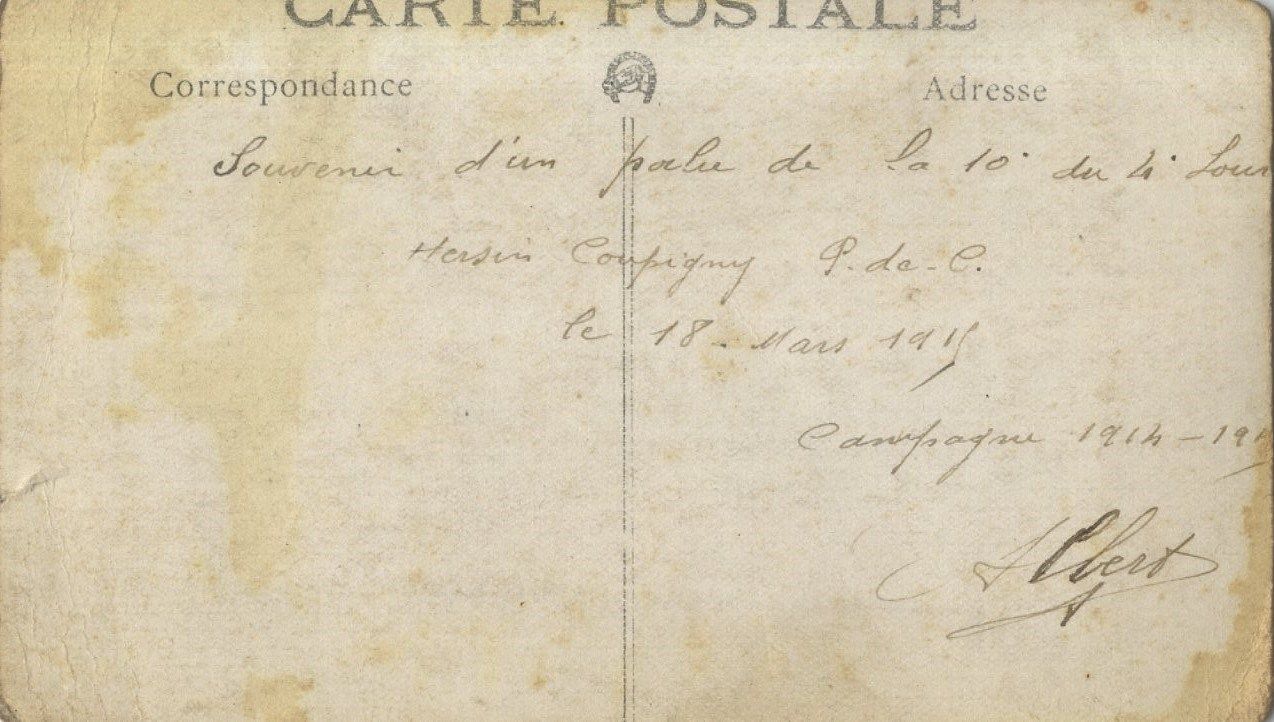 CARTE POSTALE
Correspondance
Adresse
Souvenir d'un poilu de la 10e du 4e
Hersin Coupigny P.-de-C.
le 18 - Mars 1915
Campagne 1914-191
Albert